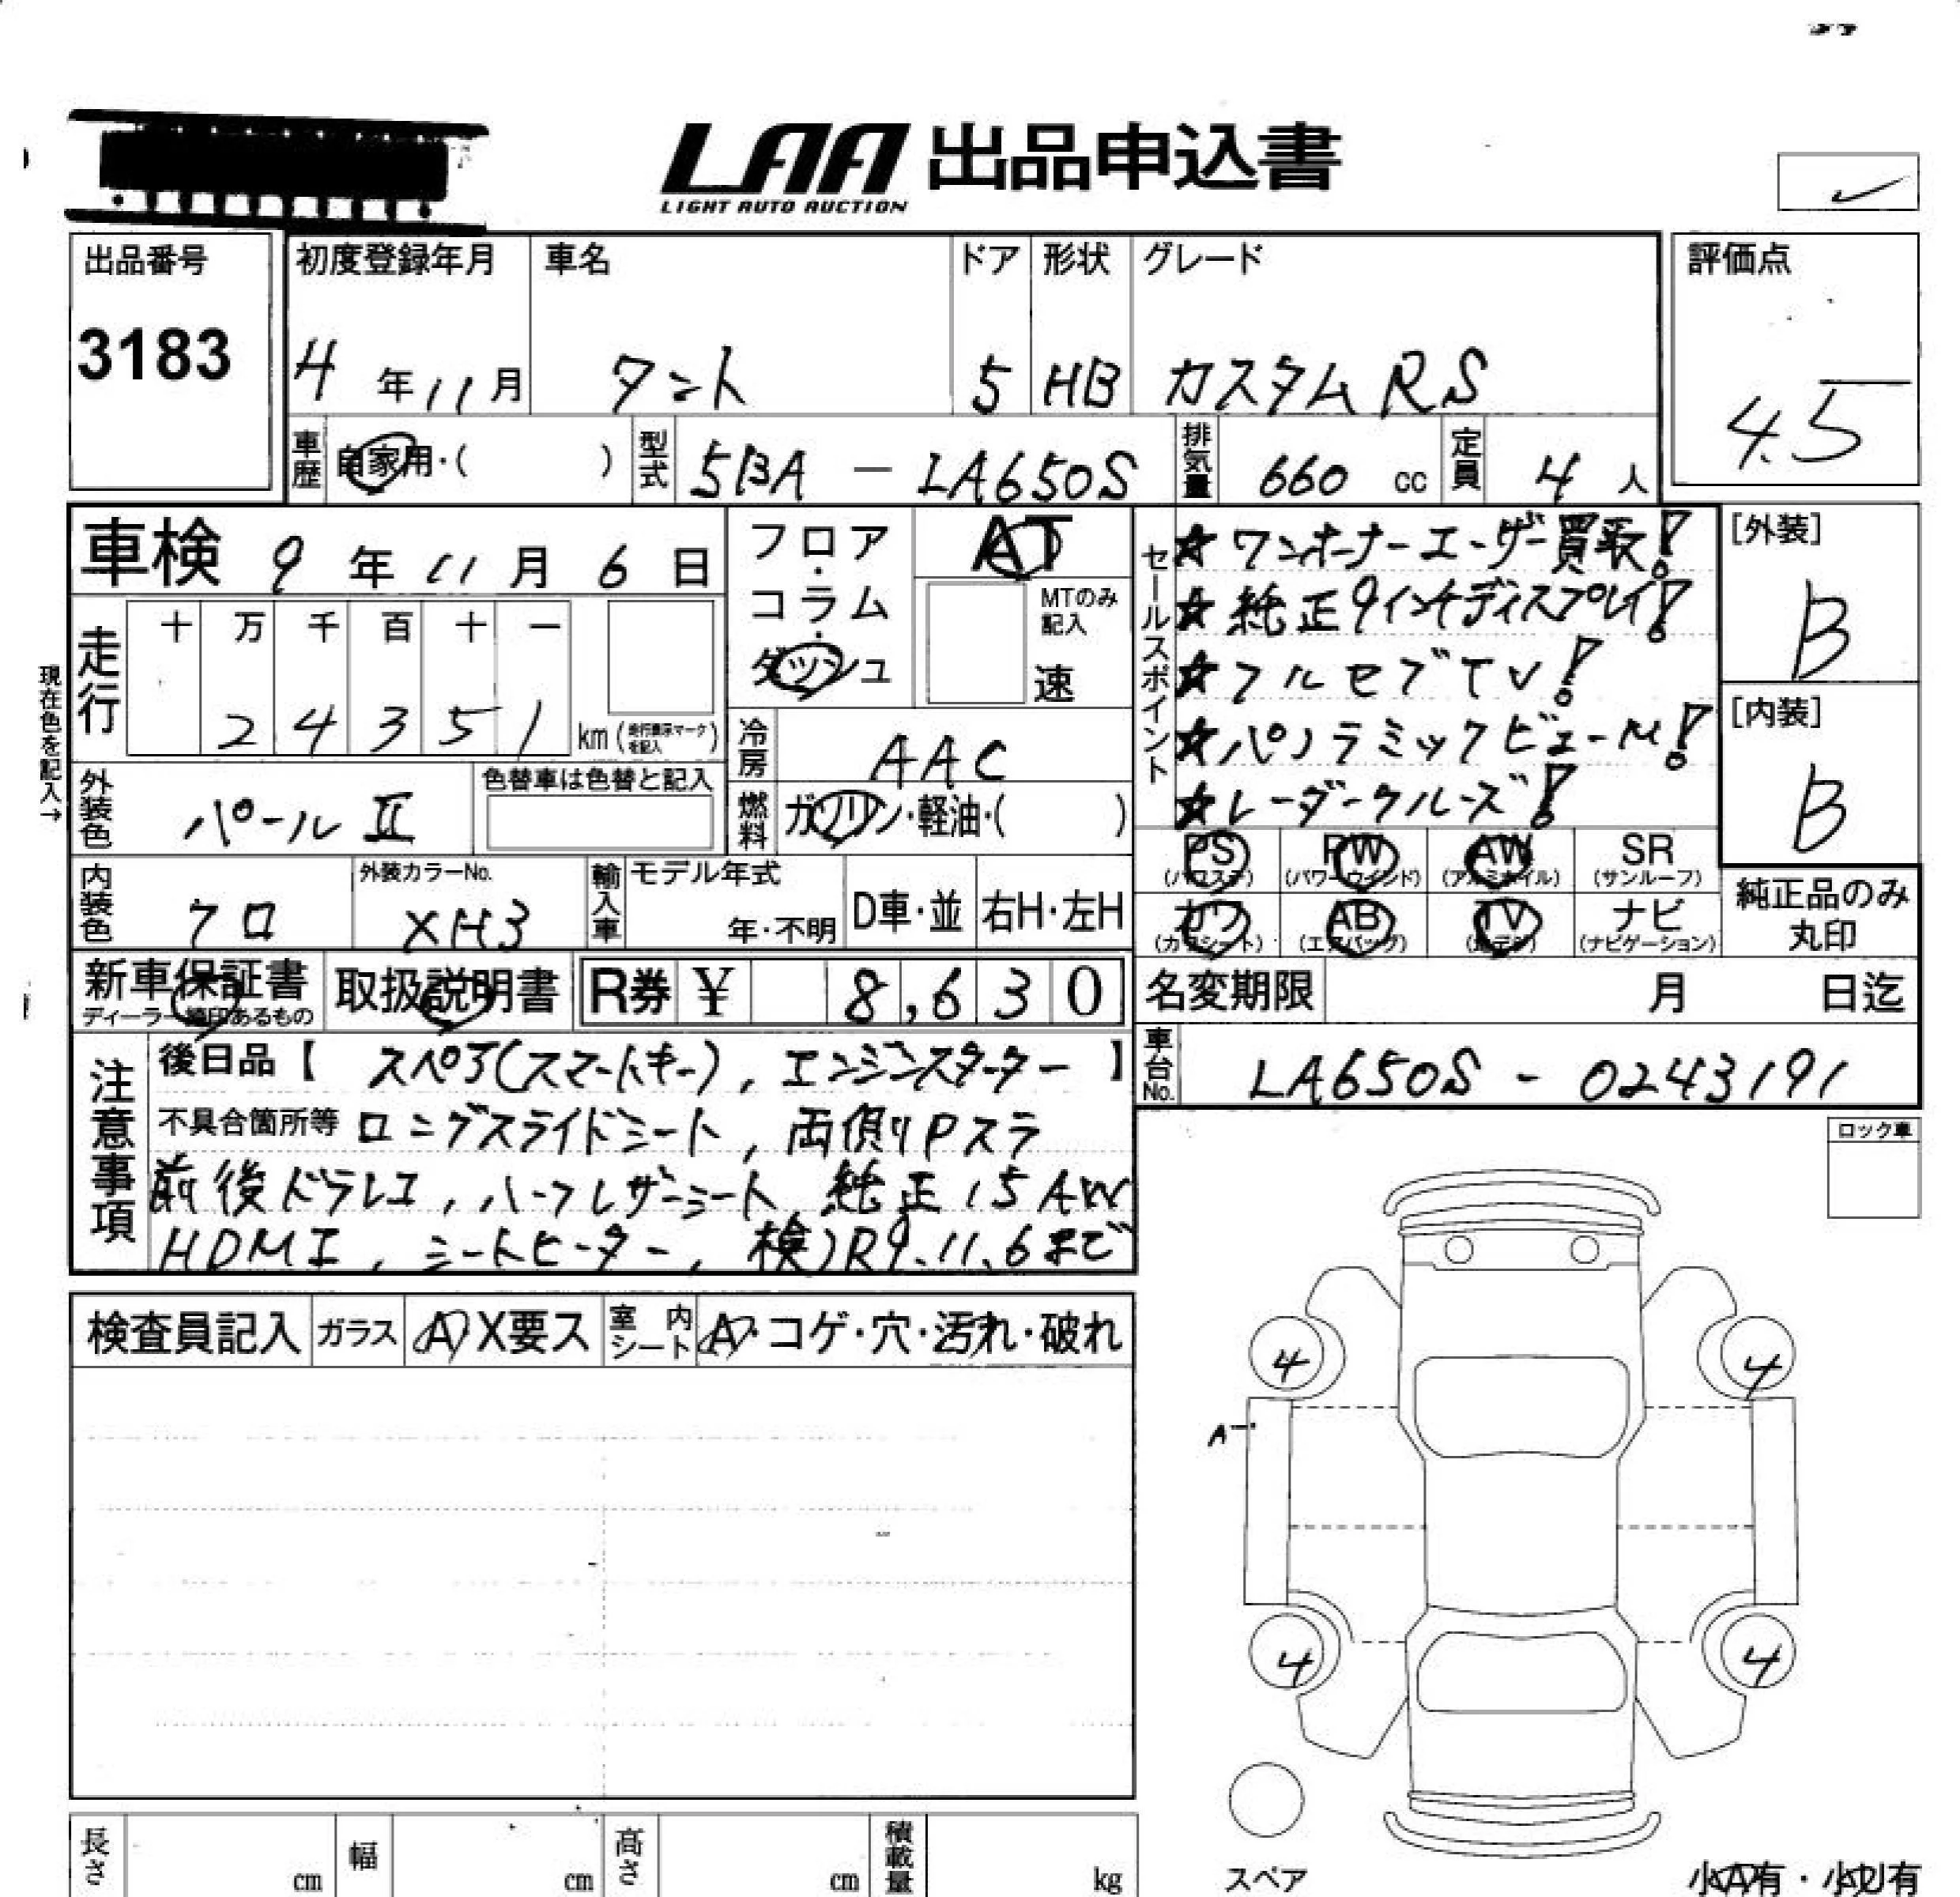 LAA 出品申込書
LIGHT AUTO AUCTION
出品番号
3183
初度登録年月 車名 ドア 形状 グレード
4年11月 タント 5 HB カスタムRS
評価点
4.5
車歴 自家用・( ) 型式 5BA - LA650S 排気量 660 cc 定員 4人
車検 9年11月6日
フロア・コラム・ダッシュ
AT
MTのみ記入
速
現在色を記入→
走行 十 万 千 百 十 一
2 4 3 5 1 km (走行表示マークを記入)
冷房 AAC
外装色 パールII 色替車は色替と記入
燃料 ガソリン・軽油・( )
内装色 クロ 外装カラーNo. XH3
輸入車 モデル年式 年・不明 D車・並 右H・左H
セールスポイント
☆ワンオーナーユーザー買取!
☆純正9インチディスプレイ!
☆フルセグTV!
☆パノラミックビューM!
☆レーダークルーズ!
[外装]
B
[内装]
B
PS (パワステ) PW (パワーウインド) AW (アルミホイル) SR (サンルーフ)
カワ (カワシート) AB (エアバッグ) TV (地デジ) ナビ (ナビゲーション)
純正品のみ丸印
新車保証書 ディーラー捺印あるもの 取扱説明書 R券 ¥ 8,630
名変期限 月 日迄
車台No. LA650S - 0243191
注意事項
後日品【 スペア(スマートキー), エンジンスターター 】
不具合箇所等 ロングスライドシート, 両側Pスラ
前後ドラレコ, ハーフレザーシート, 純正15AW
HDMI, シートヒーター, 検)R9.11.6まで
ロック車
検査員記入 ガラス A X要ス 室内シート A・コゲ・穴・汚れ・破れ
4 4
A-
4 4
スペア
小A有・小U有
長さ cm 幅 cm 高さ cm 積載量 kg